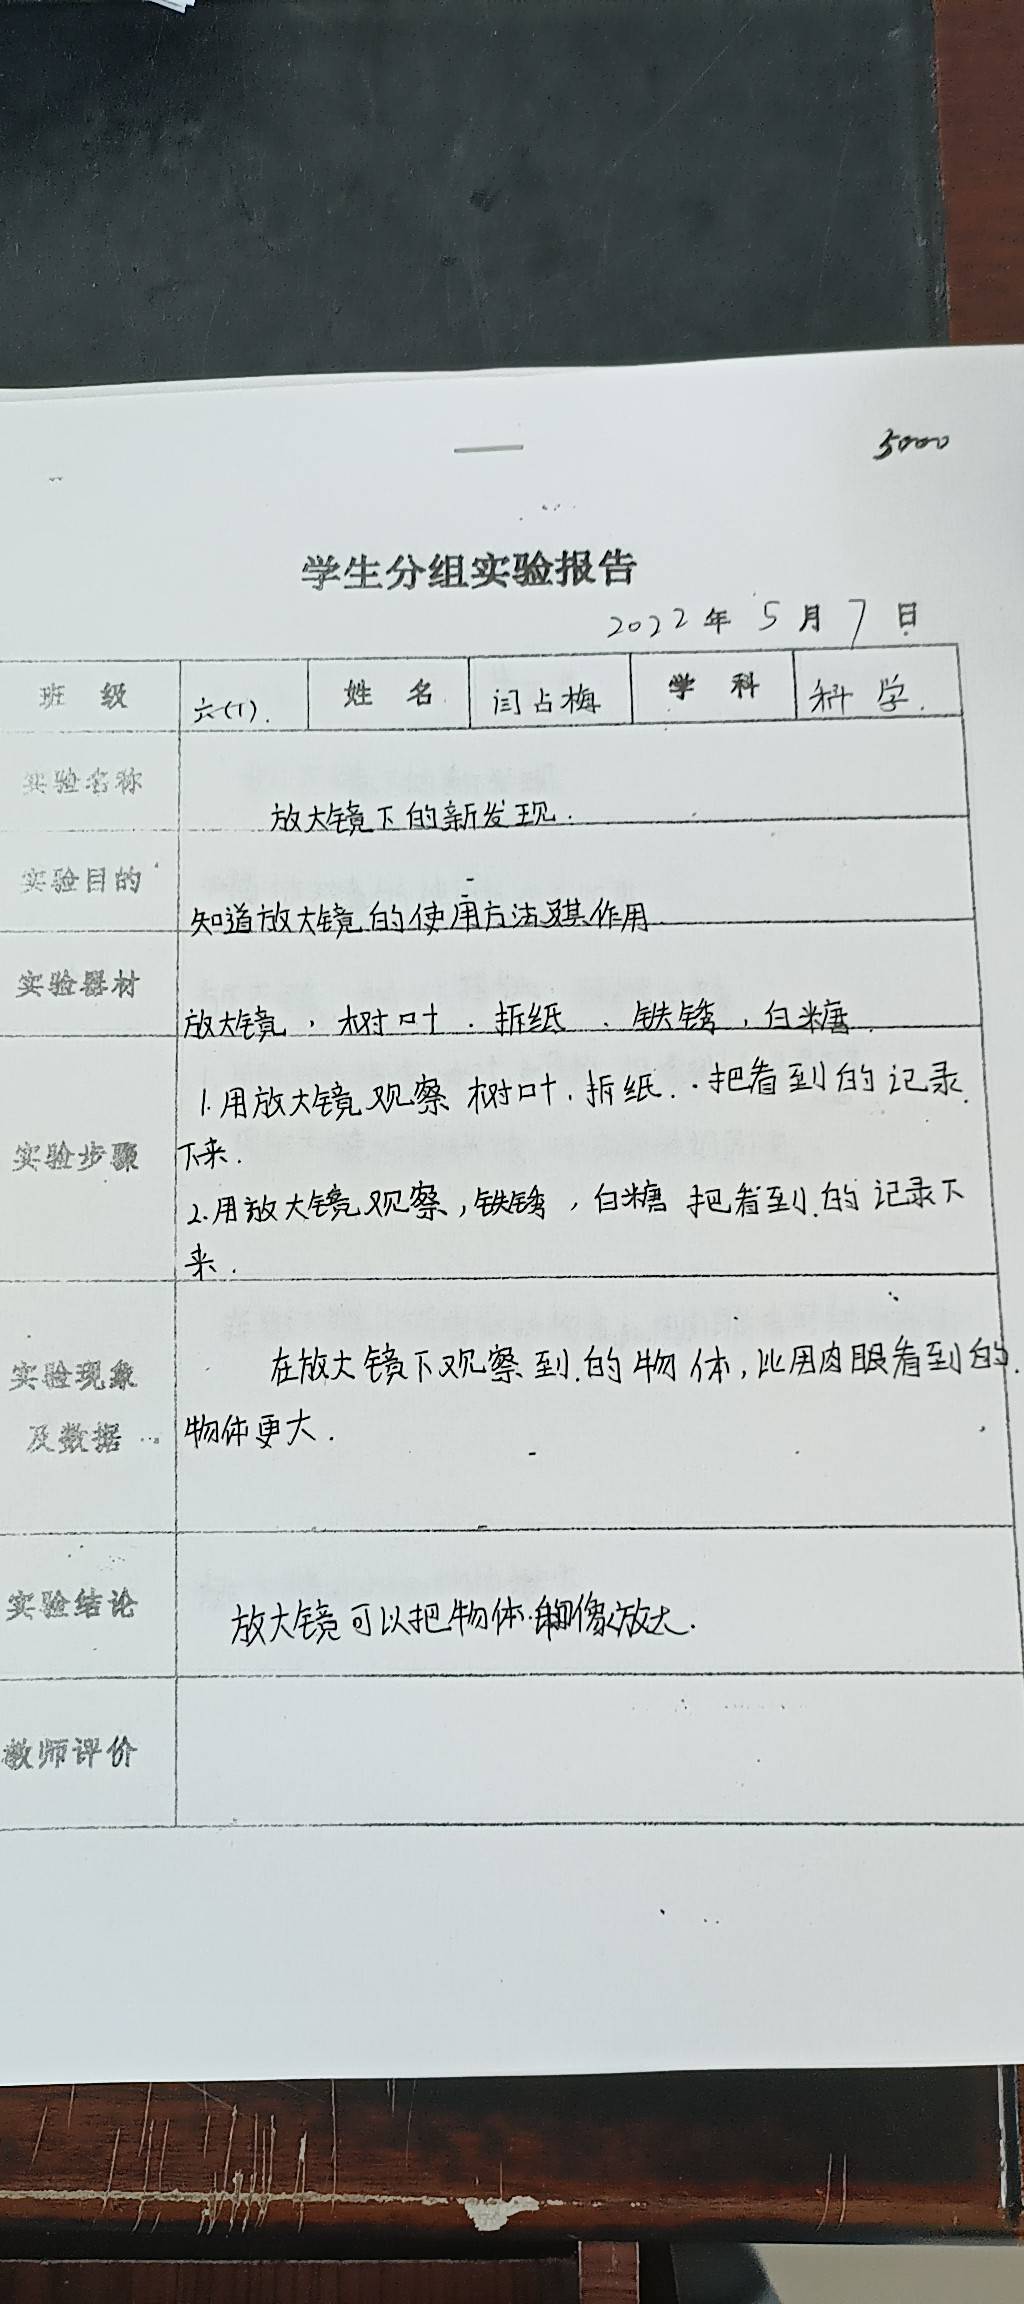 5000
学生分组实验报告
2022年 5月 7日
班 级 六(1). 姓 名 闫占梅 学 科 科学.
实验名称 放大镜下的新发现.
实验目的 知道放大镜的使用方法及其作用
实验器材 放大镜,树叶.拆纸.铁锈,白糖.
1.用放大镜观察 树叶.拆纸.把看到的记录
实验步骤 下来.
2.用放大镜观察,铁锈,白糖 把看到的记录下
来.
实验现象 在放大镜下观察到的物体,比用肉眼看到的.
及数据 物体更大.
实验结论 放大镜可以把物体图像放大.
教师评价